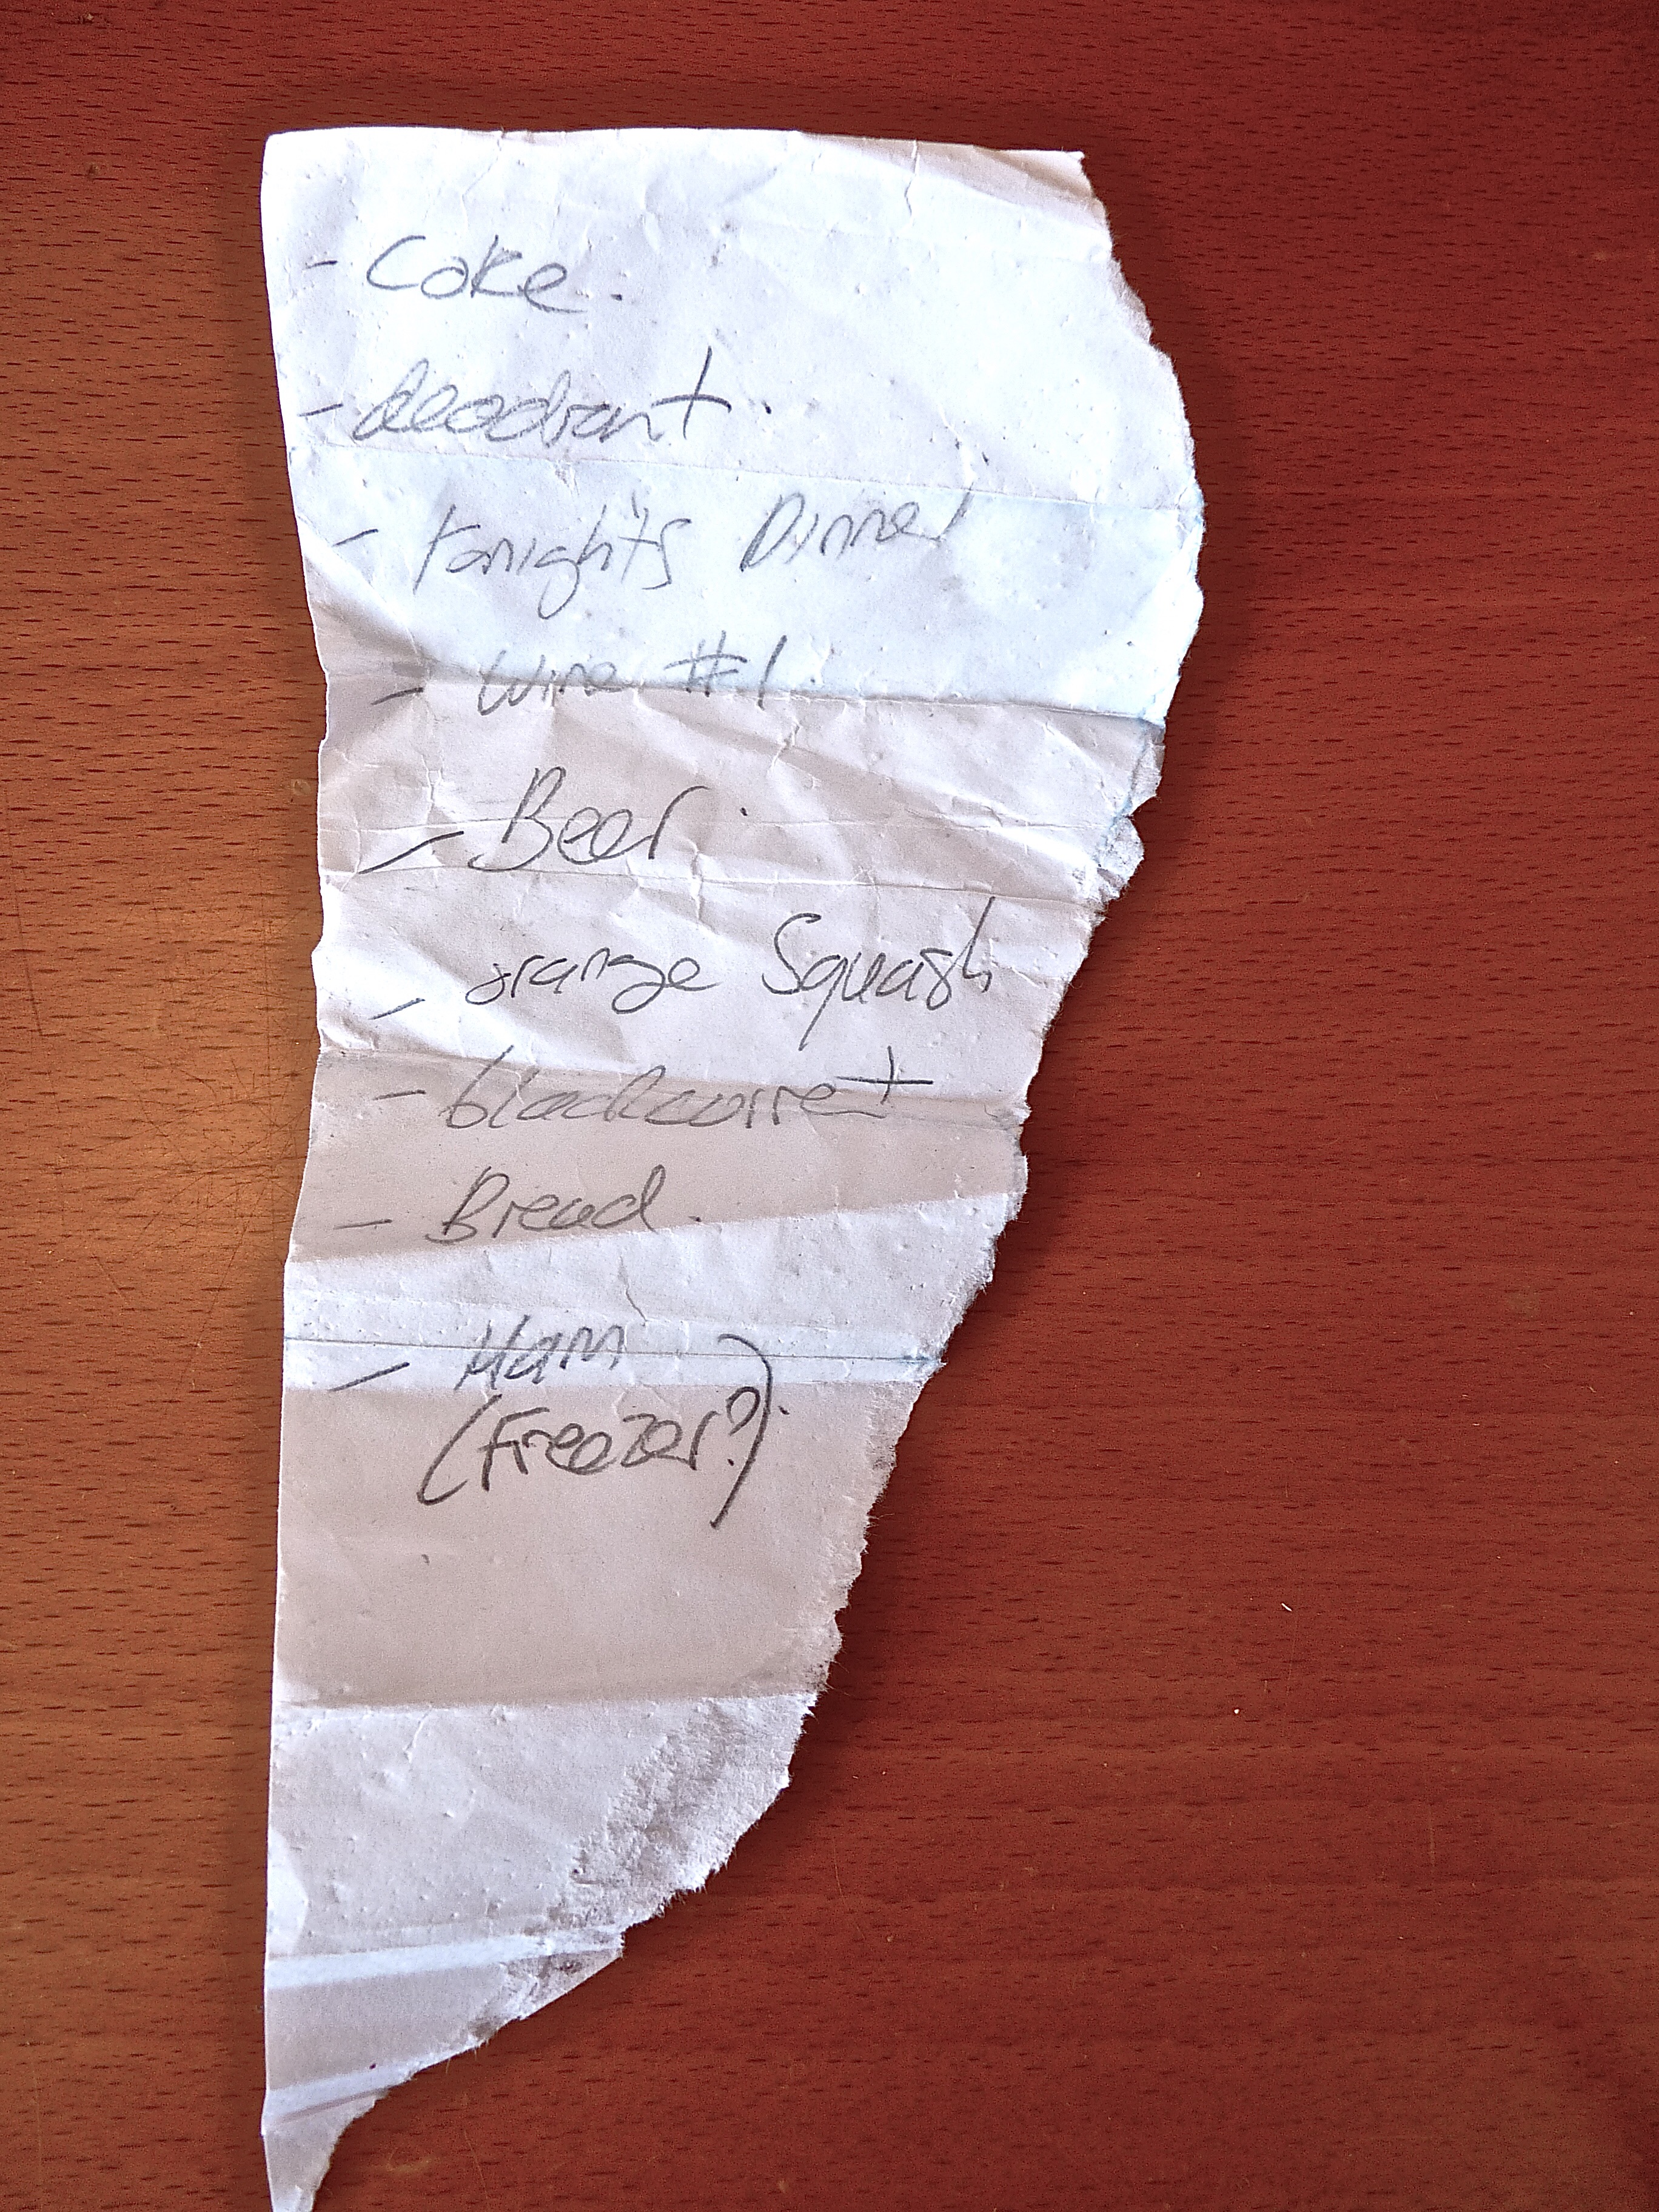 - Coke.
- deodrant.
- tonight's Dinner
- wine #1
- Beer.
- orange Squash
- blackcurret
- Bread.
- Ham
(Freezer?)